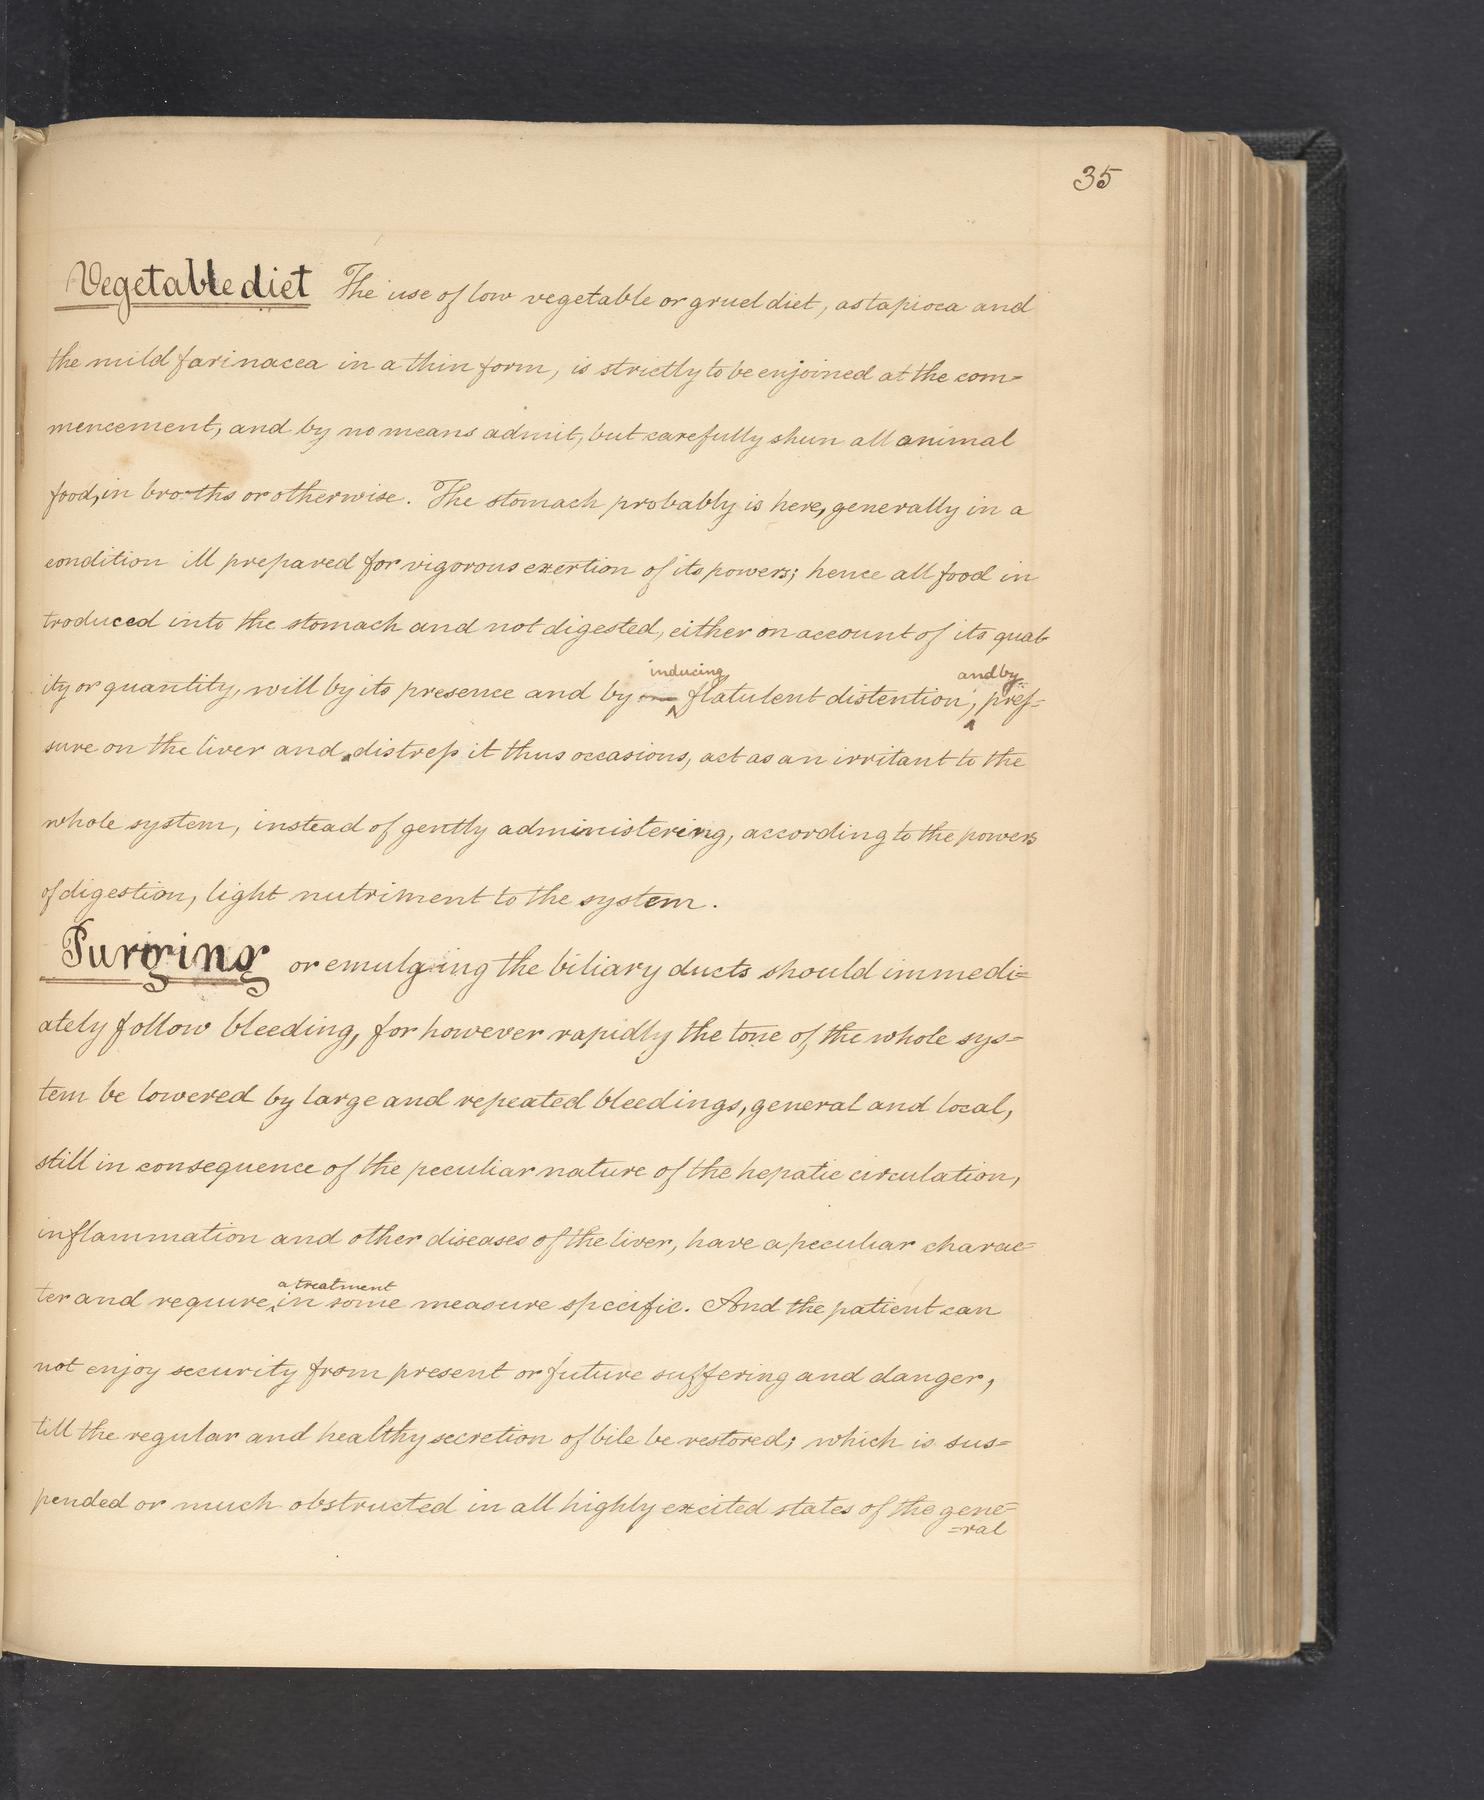 35
Vegetable diet The use of low vegetable or gruel diet, as tapioca and
the mild farinacea in a thin form, is strictly to be enjoined at the com=
mencement, and by no means admit, but carefully shun all animal
food, in broths or otherwise. The stomach probably is here, generally in a
condition ill prepared for vigorous exertion of its powers; hence all food in
troduced into the stomach and not digested, either on account of its qual
inducing and by
ity or quantity, will by its presence and by flatulent distention, pres=
sure on the liver and distress it thus occasions, act as an irritant to the
whole system, instead of gently administering, according to the powers
of digestion, light nutriment to the system.
Purging or emulging the biliary ducts should immedi=
ately follow bleeding, for however rapidly the tone of the whole sys=
tem be lowered by large and repeated bleedings, general and local,
still in consequence of the peculiar nature of the hepatic circulation,
inflammation and other diseases of the liver, have a peculiar charac=
a treatment
ter and require, in some measure specific. And the patient can
not enjoy security from present or future suffering and danger,
till the regular and healthy secretion of bile be restored; which is sus=
pended or much obstructed in all highly excited states of the gene=
=ral